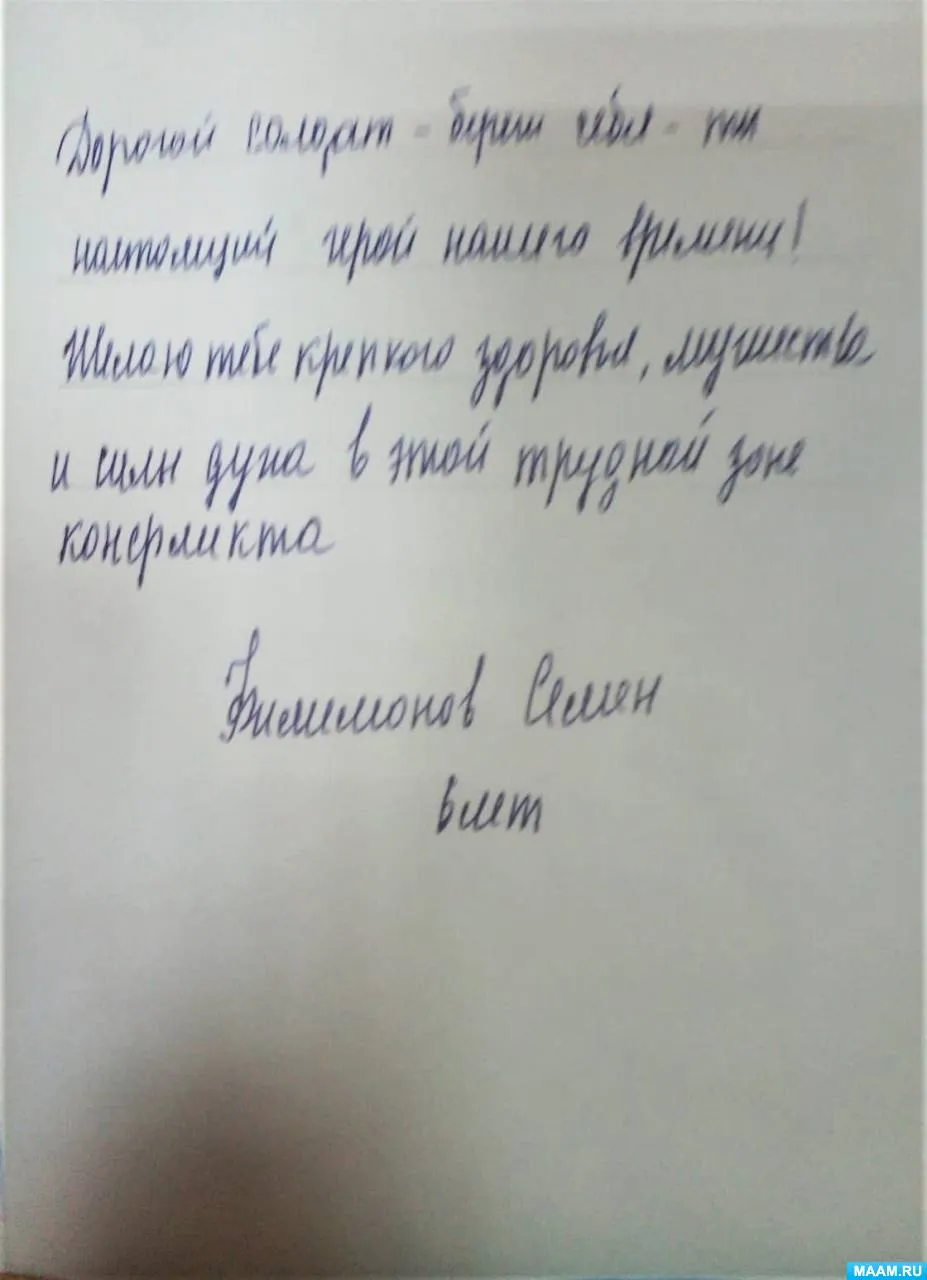 Дорогой солдат - береги себя - ты
настоящий герой нашего времени!
Желаю тебе крепкого здоровья, мужества
и силы духа в этой трудной зоне
конфликта
Филимонов Семен
6 лет
MAAM.RU